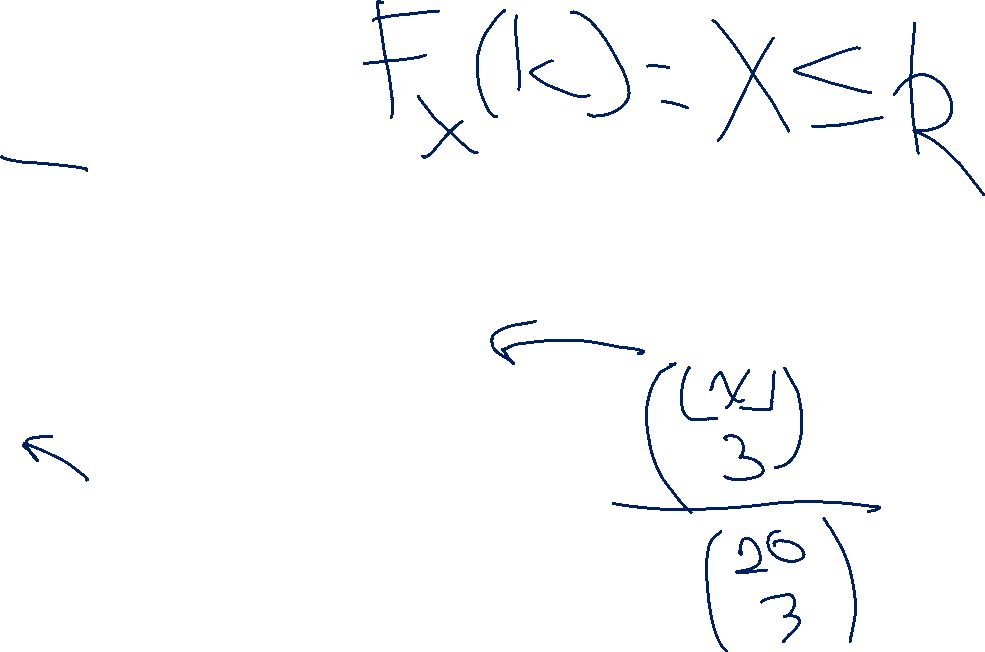 F_X(k) = X ≤ k
(⌊x⌋
3)
(20
3)